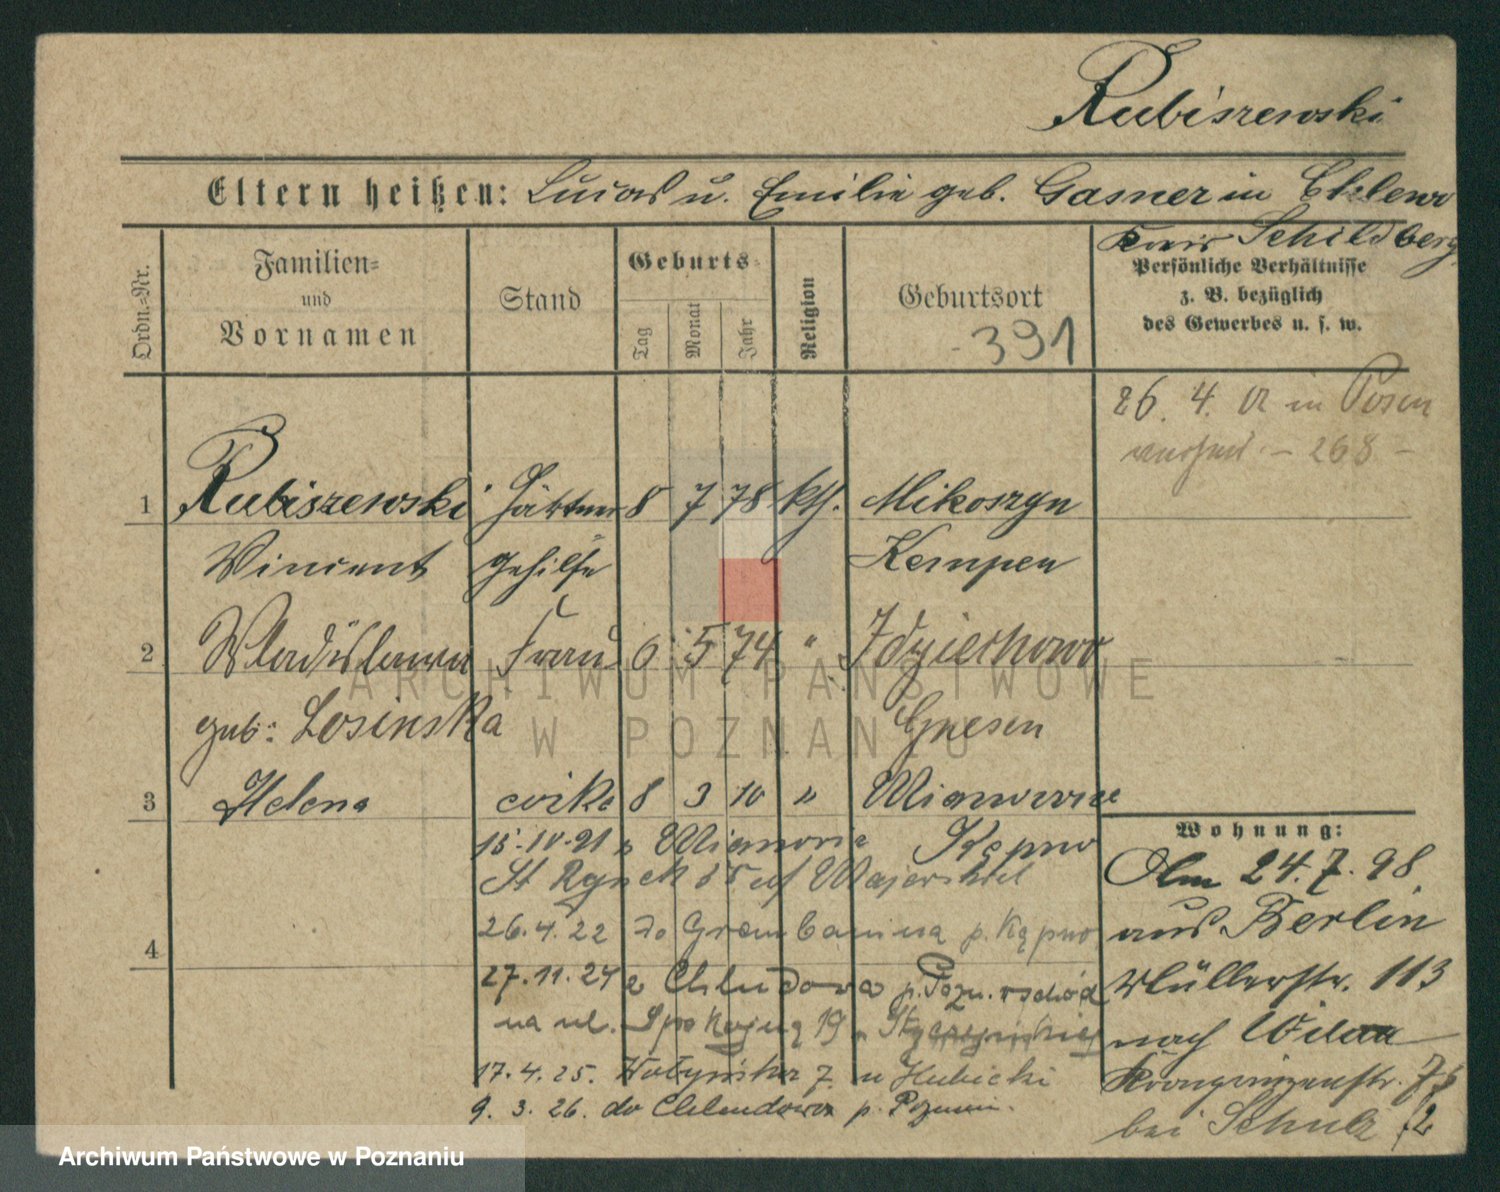 Rubiszewski
Eltern heißen: Lucas u. Emilie geb. Gasner in
Kreis Schildberg
Ordn.-Nr.
Familien-
und
Vornamen
Stand
Geburts-
Tag
Monat
Jahr
Religion
Geburtsort
- 391
Persönliche Verhältnisse
z. B. bezüglich
des Gewerbes u. s. w.
26. 4. in Posen
- 268 -
1 Rubiszewski Gärtner 8 7 78 kth. Mikoszyn
Vincent gehilfe Kempen
2 Wladislawa Frau 6 5 74 "
geb: Losinska Gnesen
3 Helena córka 8 3 10 "
Kępno
St Rynek
4
26.4.22 do Grembanina p. Kępno
27.11.24 z Chludowa p. Pozn. wschód
na ul. Spokojną 19
17.4.25. Wołyńska 7. u Hubicki
9. 3. 26. do Chludowa p. Poznań.
Wohnung:
Olm 24.7.98.
aus Berlin
Müllerstr. 113
nach Wilda
Kronprinzenstr.
bei Schulz
ARCHIWUM PAŃSTWOWE
W POZNANIU
Archiwum Państwowe w Poznaniu